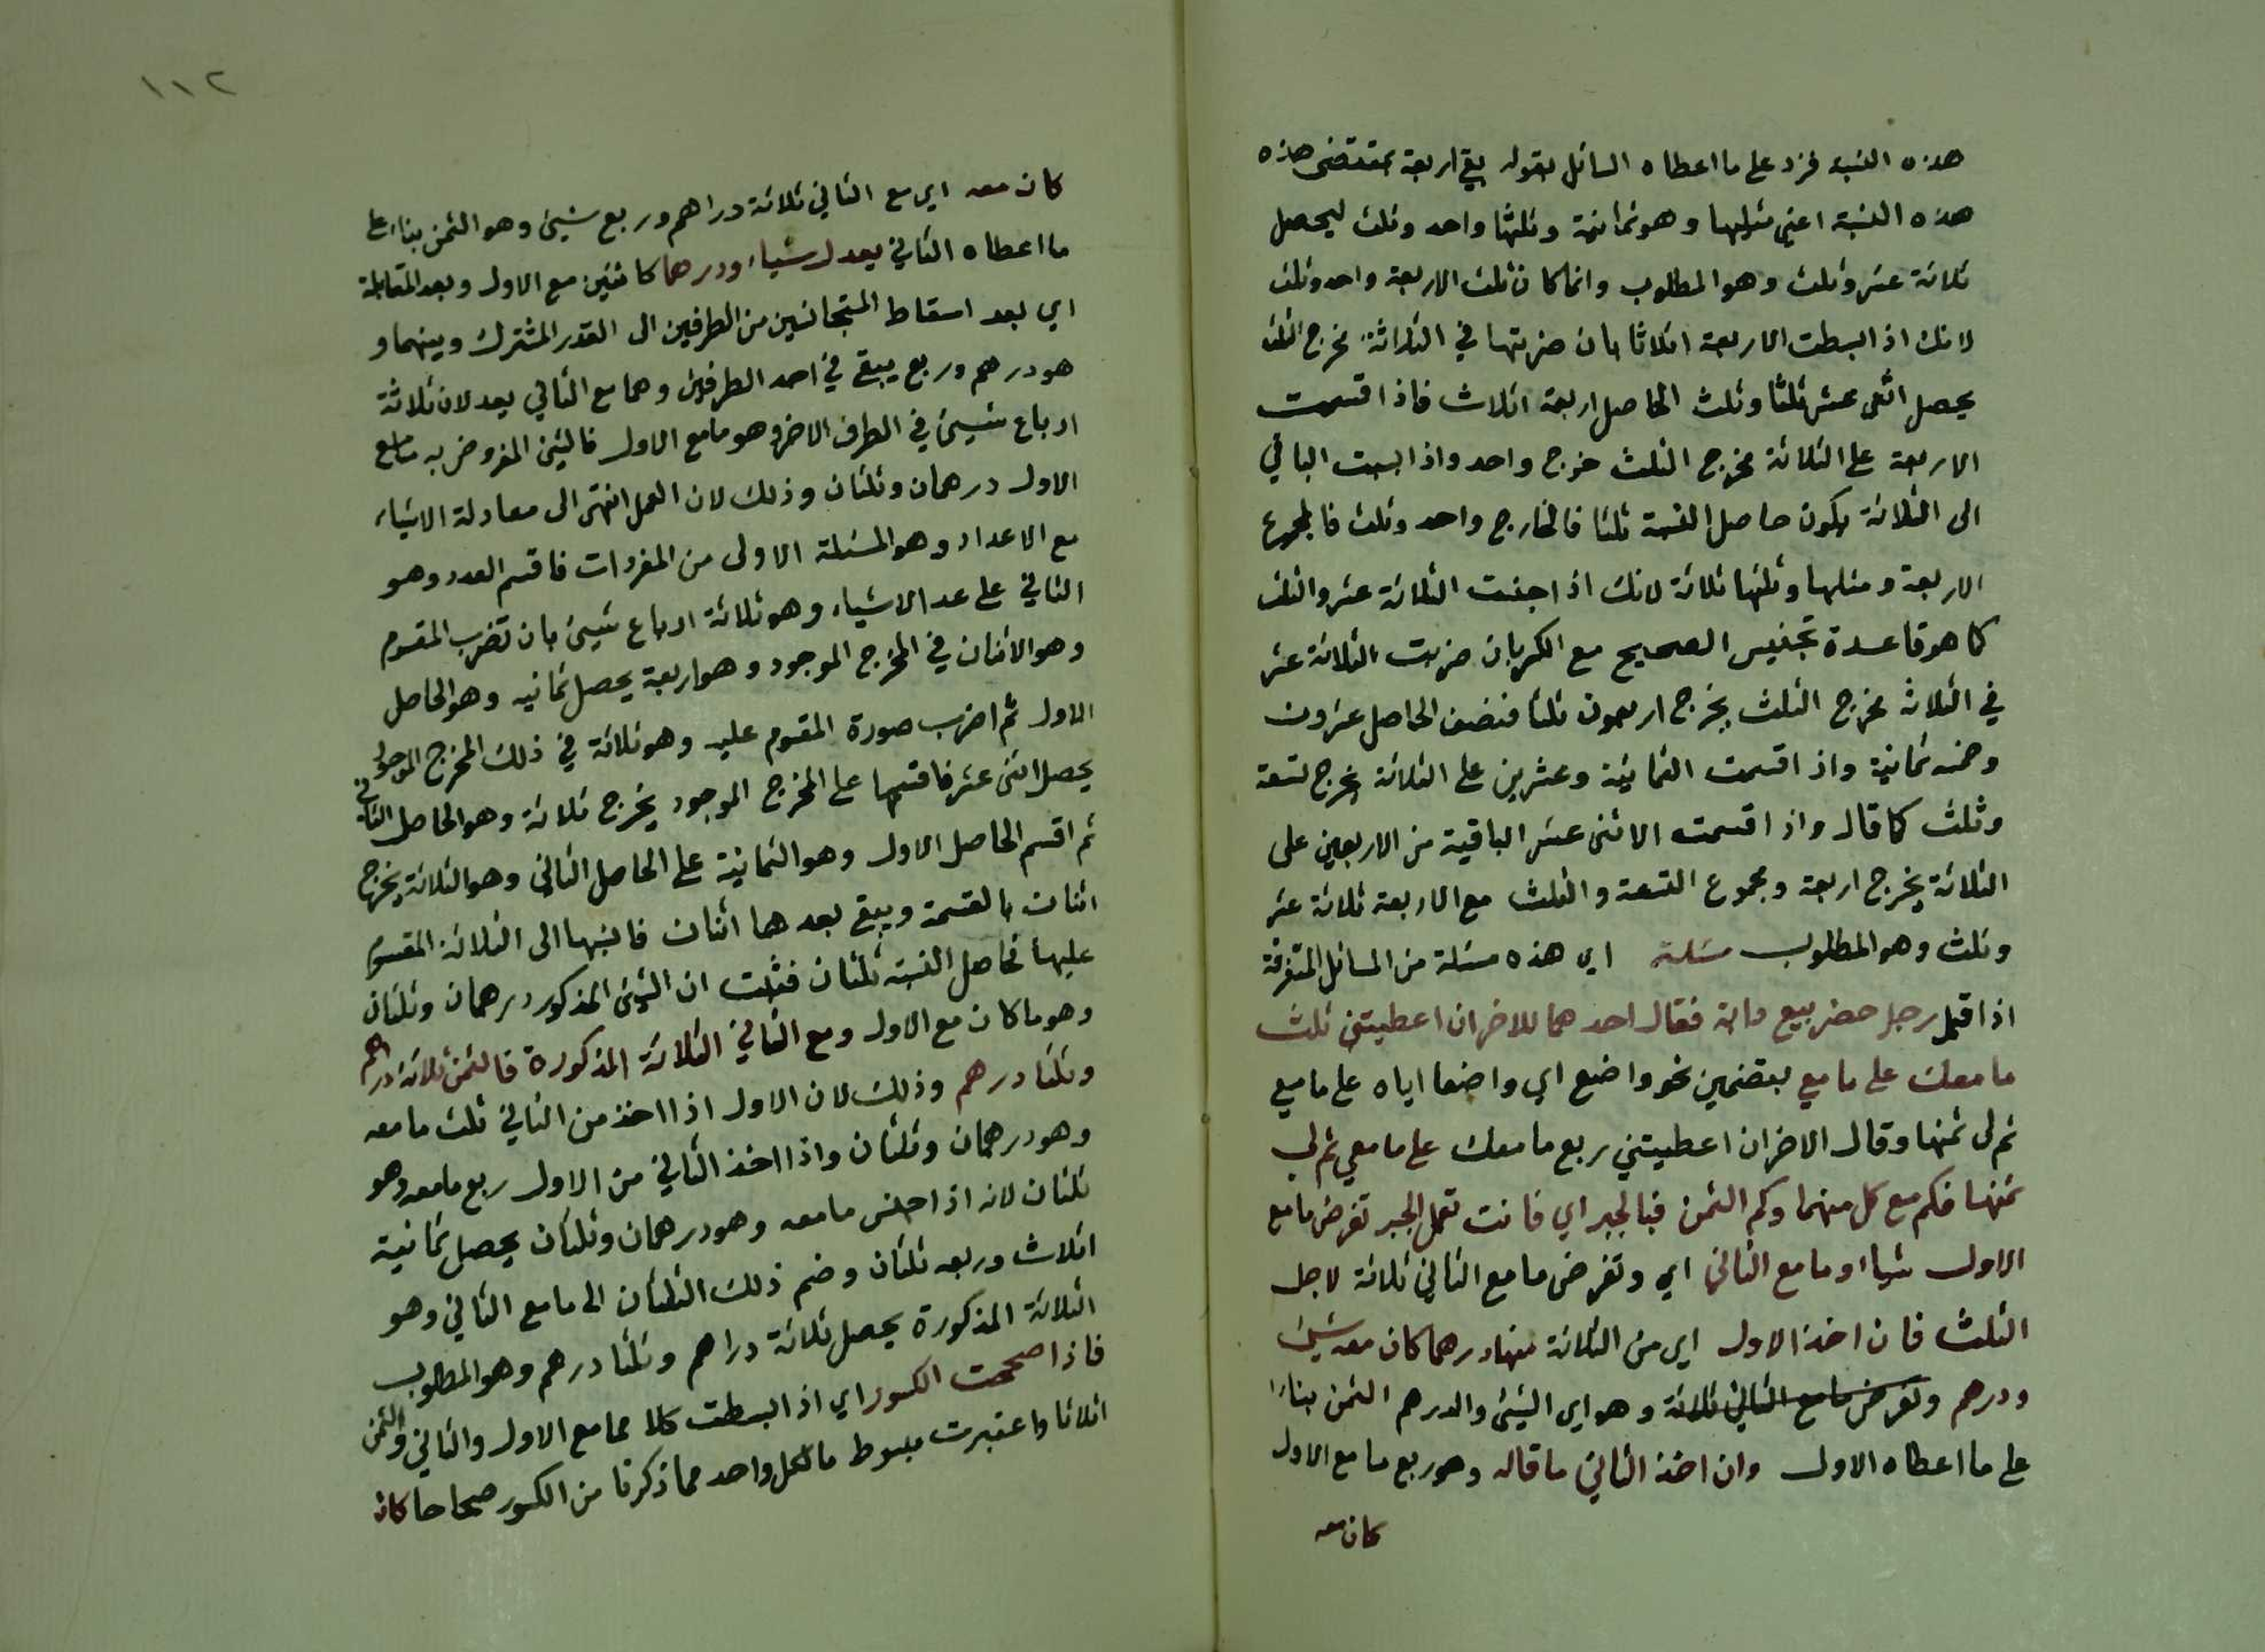 هذه النسبة فزد على ما اعطاه السائل بقوله بقي اربعة بمقتضى هذه
هذه النسبة اعني مثليها وهو ثمانية وثلثها واحد وثلث ليحصل
ثلاثة عشر وثلث وهو المطلوب وانما كان ثلث الاربعة واحد وثلث
لانك اذا بسطت الاربعة اثلاثا بان ضربتها في الثلاثة مخرج الثلث
يحصل اثنى عشر ثلثا وثلث الحاصل اربعة اثلاث فاذا قسمت
الاربعة على الثلاثة مخرج الثلث خرج واحد واذا نسبت الباقي
الى الثلاثة يكون حاصل النسبة ثلثا فالخارج واحد وثلث فالمجموع
الاربعة ومثلها وثلثها ثلاثة لانك اذا جنست الثلاثة عشر والثلث
كما هو قاعدة تجنيس الصحيح مع الكسر بان ضربت الثلاثة عشر
في الثلاثة مخرج الثلث يخرج اربعون ثلثا فنصف الحاصل عشرون
وخمسه ثمانية واذا قسمت الثمانية وعشرين على الثلاثة يخرج تسعة
وثلث كما قال واذا قسمت الاثنى عشر الباقية من الاربعين على
الثلاثة يخرج اربعة ومجموع التسعة والثلث مع الاربعة ثلاثة عشر
وثلث وهو المطلوب مسئلة اي هذه مسئلة من المسائل المتفرقة
اذا قيل رجل حضر بيع دابة فقال احدهما للاخر ان اعطيتني ثلث
ما معك على ما معي بتضمين نحو واضع اي واضعا اياه على ما معي
تم لى ثمنها وقال الاخر ان اعطيتني ربع ما معك على ما معي تم لي
ثمنها فكم مع كل منهما وكم الثمن فبالجبر اي فانت تعمل الجبر تفرض ما مع
الاول شياء وما مع الثاني اي وتفرض ما مع الثاني ثلاثة لاجل
الثلث فان اخذ الاول اي من الثلاثة منها درهما كان معه شيئ
ودرهم وتفرض ما مع الثاني ثلاثة وهو اي الشيئ والدرهم الثمن بناءً
على ما اعطاه الاول وان اخذ الثاني ما قاله وهو ربع ما مع الاول
كان معه
١١٢
كان معه اي مع الثاني ثلاثة دراهم وربع شيئ وهو الثمن بناء على
ما اعطاه الثاني يعدل شياء ودرهما كائنين مع الاول وبعد المقابلة
اي بعد اسقاط المتجانسين من الطرفين الى القدر المشترك وبينهما و
هو درهم وربع يبقى في احد الطرفين وهما مع الثاني يعدلان ثلاثة
ارباع شيئ في الطرف الاخر وهو ما مع الاول فالشيئ المفروض به ما مع
الاول درهمان وثلثان وذلك لان العمل انتهى الى معادلة الاشياء
مع الاعداد وهو المسئلة الاولى من المفردات فاقسم العدد وهو
الثاني على عدد الاشياء وهو ثلاثة ارباع شيئ بان تضرب المقسوم
وهو الاثنان في المخرج الموجود وهو اربعة يحصل ثمانيه وهو الحاصل
الاول ثم اضرب صورة المقسوم عليه وهو ثلاثة في ذلك المخرج الموجود
يحصل اثنى عشر فاقسمها على المخرج الموجود يخرج ثلاثة وهو الحاصل الثاني
ثم اقسم الحاصل الاول وهو الثمانية على الحاصل الثاني وهو الثلاثة يخرج
اثنان بالقسمة ويبقى بعدهما اثنان فانسبها الى الثلاثة المقسوم
عليها فحاصل النسبة ثلثان فثبت ان الشيئ المذكور درهمان وثلثان
وهو ما كان مع الاول ومع الثاني الثلاثة المذكورة فالثمن ثلاثة دراهم
وثلثا درهم وذلك لان الاول اذا اخذ من الثاني ثلث ما معه
وهو درهمان وثلثان واذا اخذ الثاني من الاول ربع ما معه وهو
ثلثان لانه اذا جنس ما معه وهو درهمان وثلثان يحصل ثمانية
اثلاث وربعه ثلثان وضم ذلك الثلثان الى ما مع الثاني وهو
الثلاثة المذكورة يحصل ثلاثة دراهم وثلثا درهم وهو المطلوب
فاذا صححت الكسور اي اذا بسطت كلا مما مع الاول والثاني والثمن
اثلاثا واعتبرت مبسوط ما لكل واحد مما ذكرنا من الكسور صحاحا كان